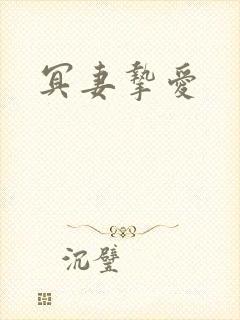 冥妻摯愛
沉璧